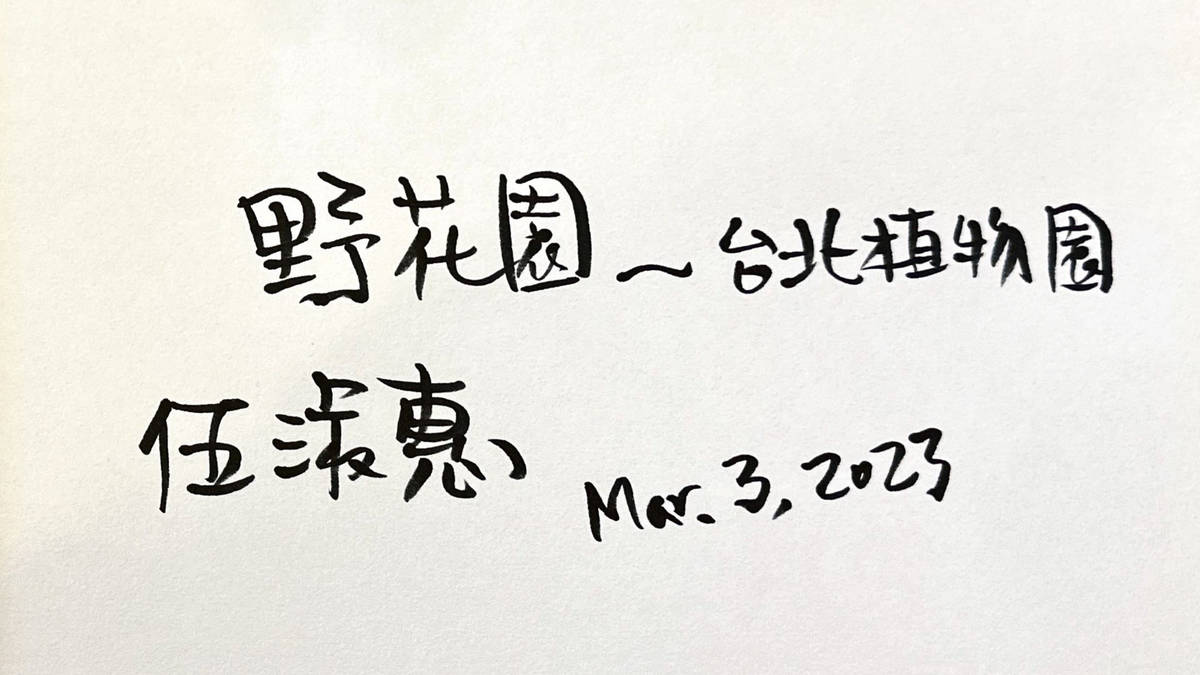 野花園～台北植物園
伍淑惠 Mar. 3, 2023